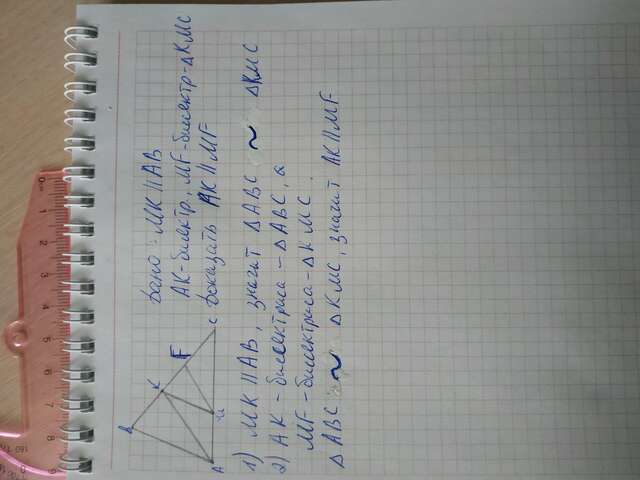 0см 1 2 3 4 5 6 7 8 9
B
K
F
A
M
C
Дано: MK || AB
AK-биектр., MF-биссектр-△KMC
Доказать AK || MF
1) MK || AB, значит △ABC ~ △KMC
2) AK - биссектриса - △ABC, а
MF - биссектриса - △KMC.
△ABC ~ △KMC, значит AK || MF